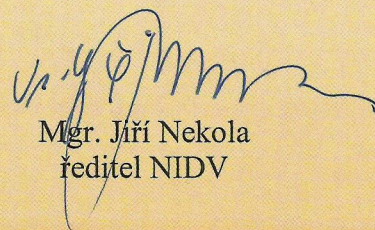 Mgr. Jiří Nekola
ředitel NIDV